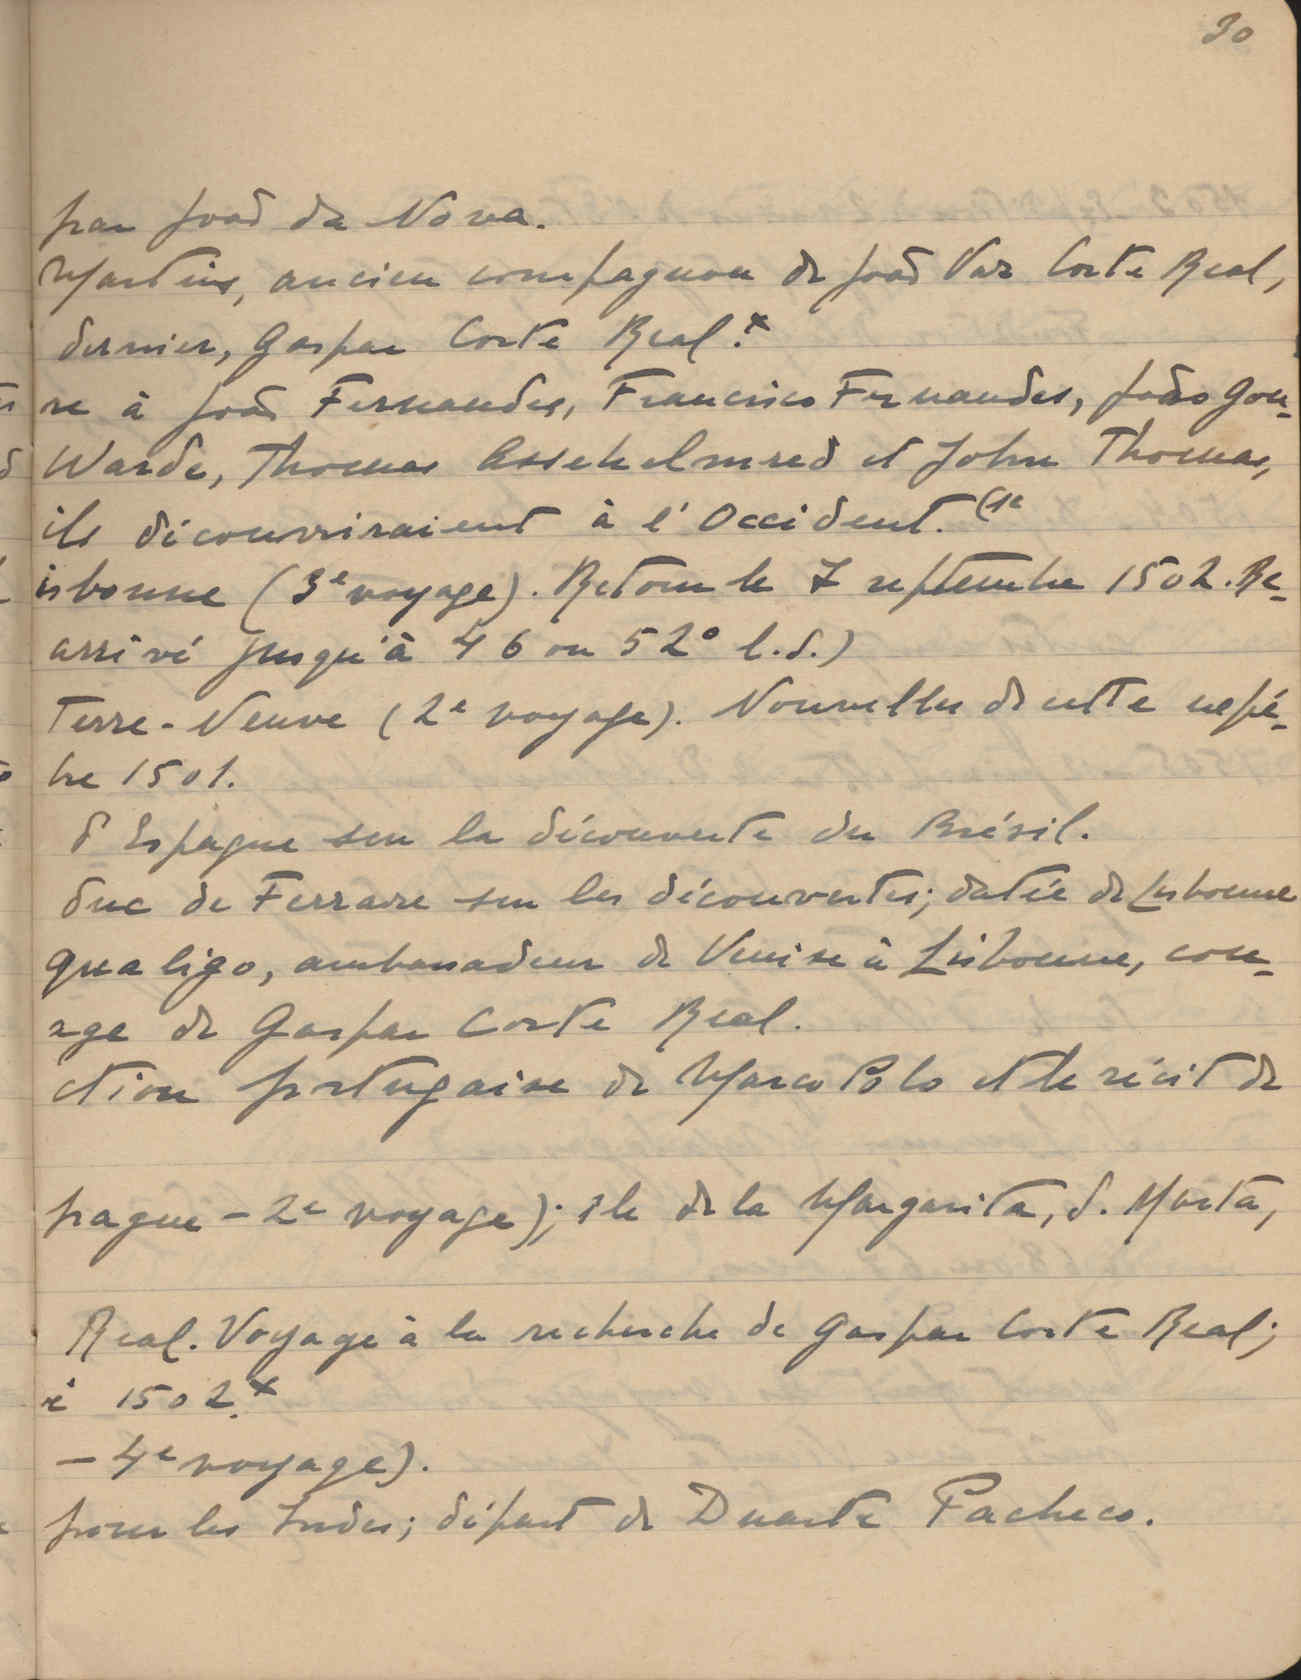 30
par João da Nova.
Martins, ancien compagnon de João Vaz Corte Real,
dernier, Gaspar Corte Real.x
re à João Fernandes, Francisco Fernandes, João Gon-
Warde, Thomas Assehelmred et John Thomas,
ils découvriraient à l'Occident. (1e
isbonne (3e voyage). Retour le 7 septembre 1502. Re-
arrivé jusqu'à 46 ou 52° l.S.)
Terre-Neuve (2e voyage). Nouvelles de cette expé-
bre 1501.
d'Espagne sur la découverte du Brésil.
duc de Ferrare sur les découvertes; datée de Lisbonne
qualigo, ambassadeur de Venise à Lisbonne, con-
age de Gaspar Corte Real.
ction portugaise de Marco Polo et le récit de
pagne - 2e voyage); île de la Margarita, S. Marta,
Real. Voyage à la recherche de Gaspar Corte Real;
1502.x
- 4e voyage).
pour les Indes; départ de Duarte Pacheco.